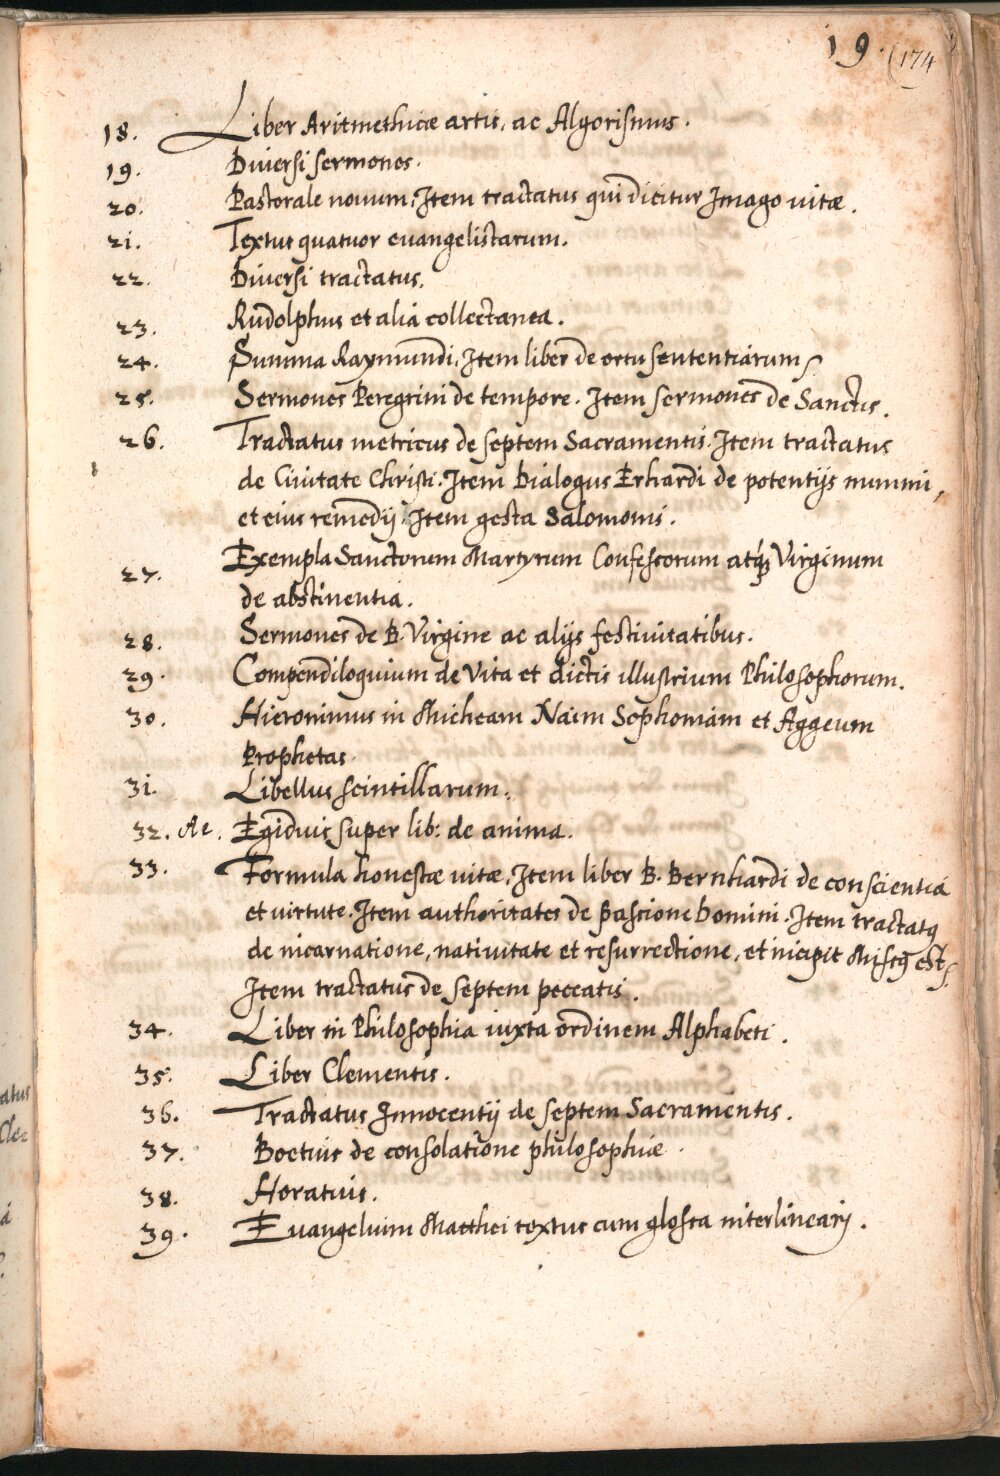 19. (174
18. Liber Aritmethicæ artis, ac Algorismus.
19. Diversi sermones.
20. Pastorale novum. Item tractatus qui dicitur Imago vitæ.
21. Textus quatuor evangelistarum.
22. Diversi tractatus.
23. Rudolphus et alia collectanea.
24. Summa Raymundi. Item liber de ortu sententiarum
25. Sermones Peregrini de tempore. Item sermones de Sanctis.
26. Tractatus metricus de septem Sacramentis. Item tractatus
de Civitate Christi. Item Dialogus Erhardi de potentijs nummi,
et eius remedij. Item gesta Salomonis.
27. Exempla Sanctorum Martyrum Confessorum atq; Virginum
de abstinentia.
28. Sermones de B. Virgine ac alijs festivitatibus.
29. Compendiloquium de vita et dictis illustrium Philosophorum.
30. Hieronimus in Micheam Naim Sophoniam et Aggeum
Prophetas.
31. Libellus scintillarum.
32. Ae. Egidius super lib: de anima.
33. Formula honestæ vitæ. Item liber B. Bernhardi de conscientia
et virtute. Item authoritates de Passione Domini. Item tractatq
de incarnatione, nativitate et resurrectione, et incipit est
Item tractatus de septem peccatis.
34. Liber in Philosophia iuxta ordinem Alphabeti.
35. Liber Clementis.
36. Tractatus Innocentij de septem Sacramentis.
37. Boetius de consolatione philosophiæ.
38. Horatius.
39. Evangelium Matthei textus cum glossa interlineari.